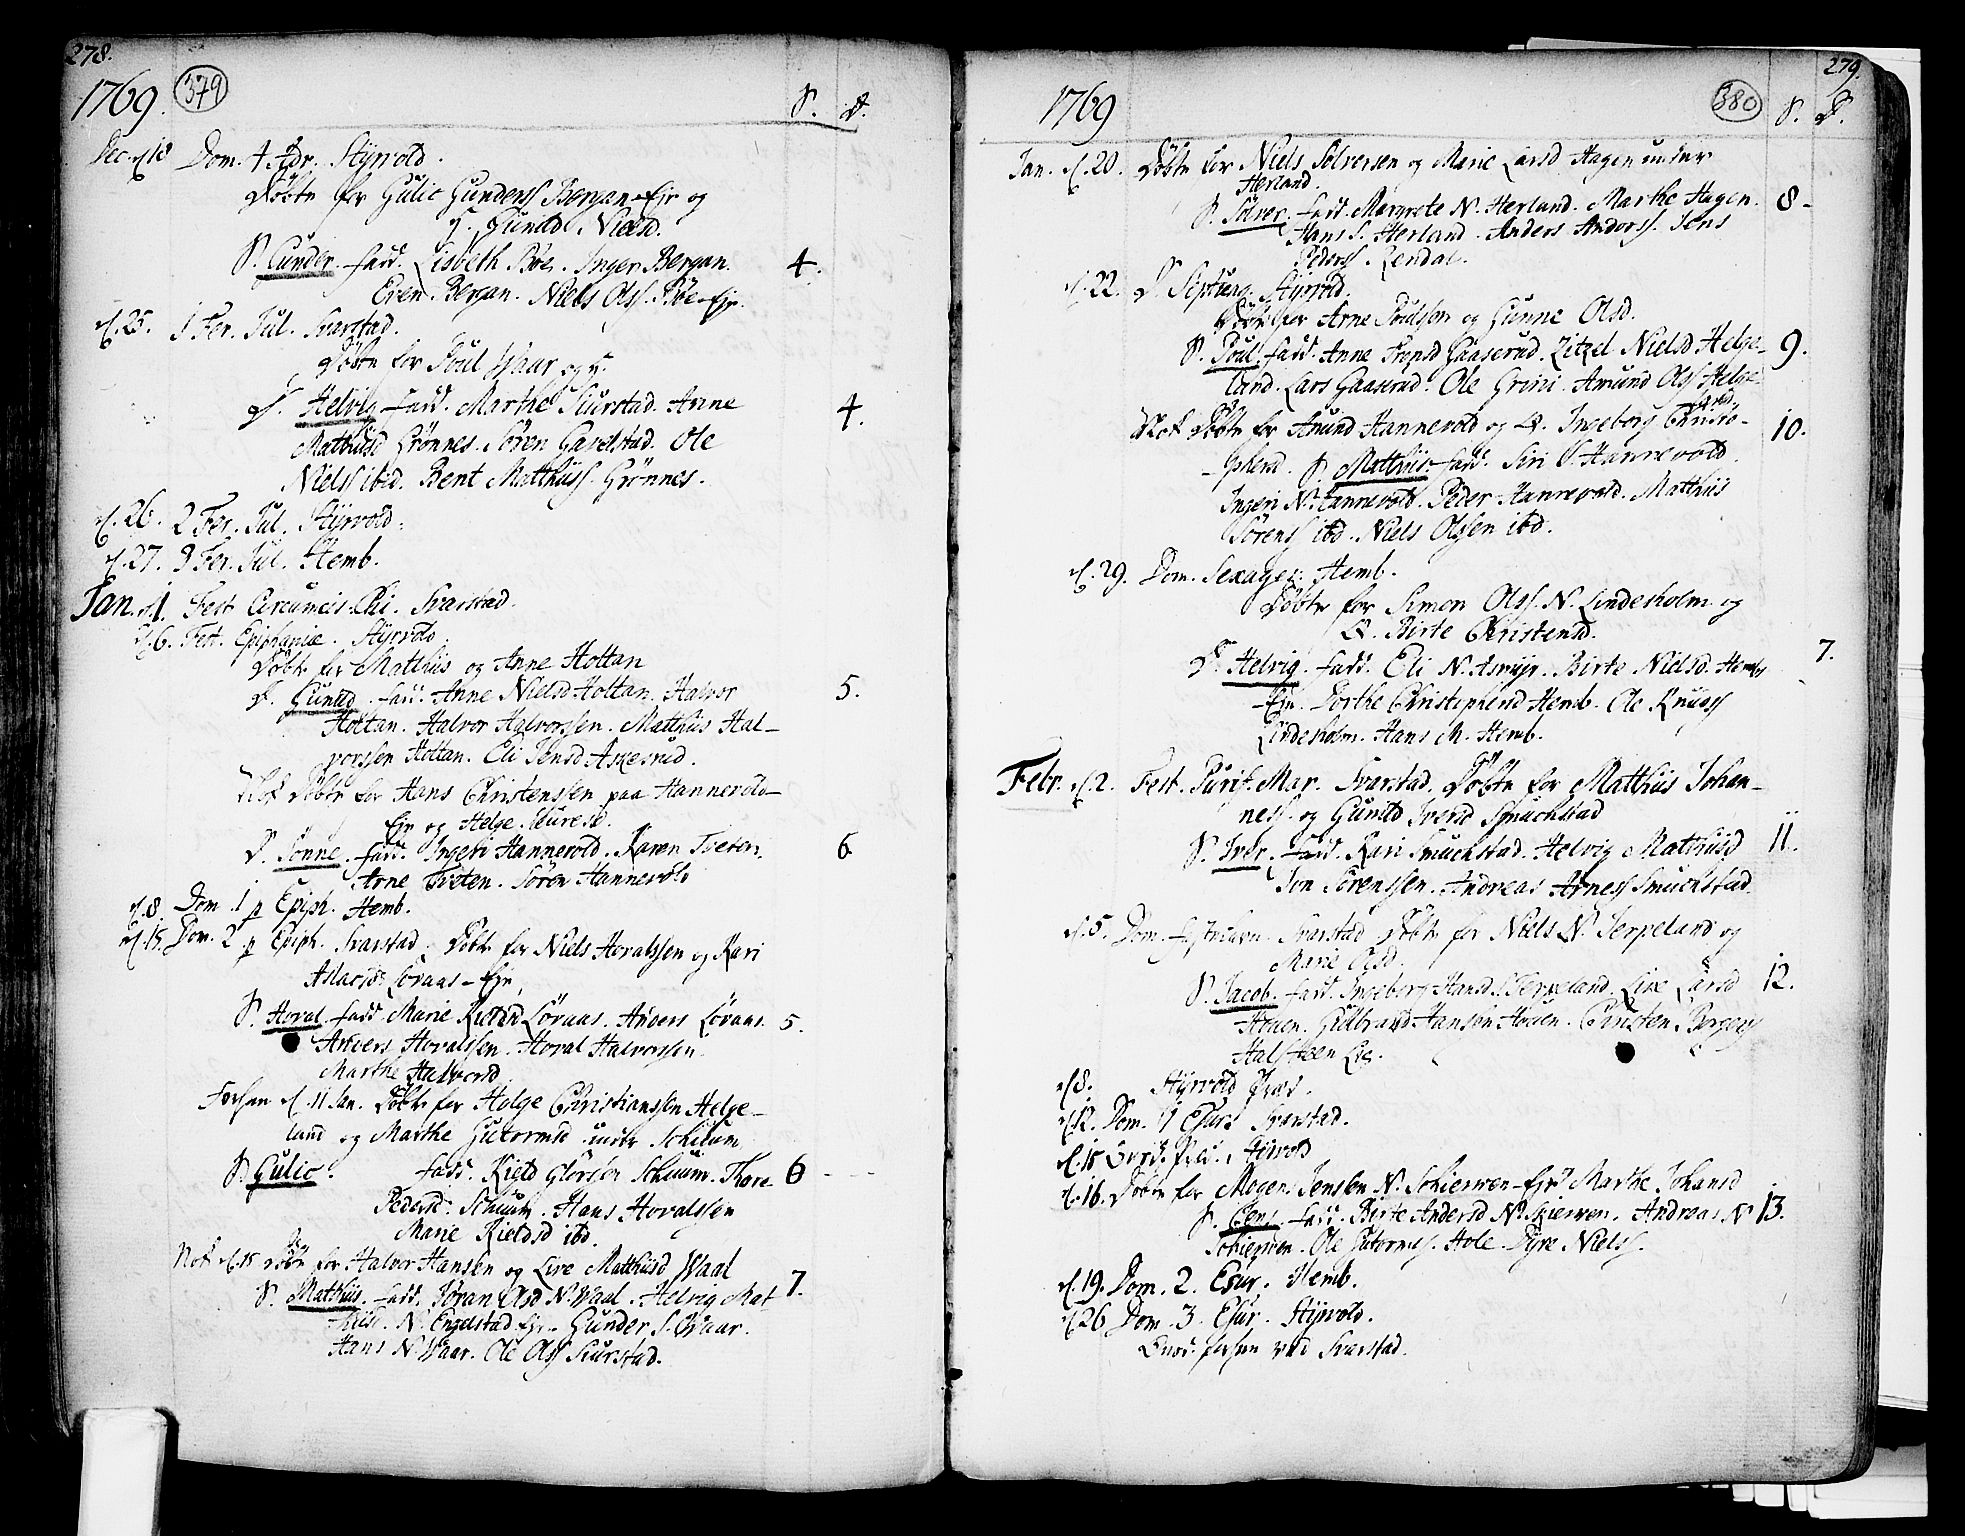 278.
1769. 379
S. D.
Dec. d. 18 Dom. 4 Adv. Styrvold.
Döbte for Gulic Gunderss Bergan-Eje og
q. Gunild Nielsd.
S. Gunder. fadd. Lisbeth Böe. Inger Bergan. 4.
Even Bergan. Niels Olss. Böe-Eje.
d. 25. 1 Fer. Jul. Svarstad.
Döbte for Poul Waar og q.
D. Helvig fadd. Marthe Siurstad. Anne 4.
Matthiisd Grönnes. Sören Gavelstad. Ole
Nielss ibid. Bent Matthiiss. Grönnes.
d. 26. 2 Fer. Jul. Styrvold.
d. 27. 3 Fer. Jul. Hemb.
Jan. d. 1. Fest Circumcis. Chi. Svarstad.
d. 6. Fest. Epiphaniæ. Styrvold.
Döbte for Matthiis og Anne Hottan
D. Gunild. fadd. Anne Nielsd Hottan. Halvor 5.
Hottan. Halvor Halvorssen. Matthiis Hal-
vorssen Hottan. Eli Jensd Askesrud.
Not Döbte for Hans Christenssen paa Hannevold-
Eje og Helge Siuresd.
D. Sönne. fadd. Ingebr Hannevold. Karen Tveten. 6
Arne Tveten. Sören Hannevold
d. 8. Dom. 1 p Epiph. Hemb.
d. 15. Dom. 2 p Epiph. Svarstad. Döbte for Niels Hovalssen og Kari
Aslacsd: Lövaas-Eje,
S. Hoval. fadd. Marie Kieldsd Lövaas. Anders Lövaas. 5.
Anders Hovalssen. Hoval Halvorssen.
Marthe Halvorsd
Forsøm d. 11 Jan. Döbte for Helge Christianssen Helge-
land og Marthe Gutormsd under Schium
S. Gulic. fadd. Kield Glörsön Schium. Thore 6
Pedersd. Schium. Hans Hovalssen
Marie Kieldsd ibd.
Not d. 15 Döbte for Halvor Hansen og Live Matthiisd Waal
S. Matthiis. fadd. Jöran Olsd N. Waal. Helvig Mat- 7.
thiisd. N. Engelstad Eje. Gunder S. Waar.
Hans N. Waar. Ole Olss Siurstad.
279.
1769 380
S. D.
Jan. d. 20. Döbte for Niels Solversen og Marie Larsd Hagen under
Herland.
S. Sölver. fadd. Margrete N. Herland. Marthe Hagen. 8-
Hans S. Herland. Anders Anderss. Jens
Pederss. Lendal.
d. 22. D. Septuag. Styrvold.
Döbte for Arne Poulsson og Gunne Olsd.
S. Poul. fadd. Anne Gaaserud. Zitzel Nielsd Helge- 9.
land. Lars Gaaserud. Ole Grini. Amund Olss Helge-
land.
Not Döbte for Anund Hannevold og Q. Ingeborg Christo- 10.
-phersd. S. Matthiis. fadd. Siri S. Hannevold
Ingeri N. Hannevold. Peder Hannevold. Matthiis
Sörenss ibd. Niels Olssen ibd.
d. 29. Dom. Sexages. Hemb.
Döbte for Simon Olss. N. Lindesholm og
Q. Birte Christensd.
D. Helvig. fadd. Eli N. Asmyr. Birte Nielsd. Hemb 7.
-Eje. Dorthe Christophersd Hemb. Ole Knuess
Lindesholm. Hans M. Hemb.
Febr. d. 2. Fest. Purif. Mar. Svarstad. Döbte for Matthiis Johan-
ness. og Gunild Iversd Smuchstad
S. Iver. fadd. Kari Smuchstad. Helvig Matthiisd 11.
Jon Sörenssen. Andreas Arness Smuchstad.
d. 5. Dom. fastelavn. Svarstad Döbte for Niels N. Serpeland og
Marie Olsd.
S. Jacob. fadd. Ingeborg Hansd Serpeland. Live Larsd 12.
Houen. Gulbrand Hansøn Houen. Christen Borgers
Halsteen Lie.
d 8. Styrvold Præd.
d 12. Dom. 1 Esur. Svarstad.
d. 15 Styrvold
d. 16. Döbte for Mogen Jenssen N. Schierven-Eje Marthe Johansd
S. Jens. fadd. Birte Andersd N. Skierven. Andreas N 13.
Schierven. Ole Gutormss. Hole. Syre Nielss.
d. 19. Dom. 2. Esur. Hemb.
d 26 Dom. 3. Esur. Styrvold.
forsøm ved Svarstad.